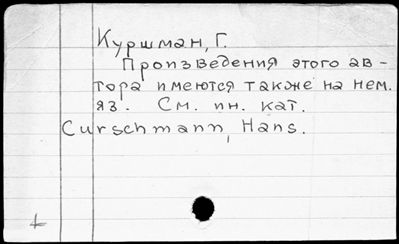 Куршман, Г.
Произведения этого ав-
тора имеются также на нем.
яз. См. ин. кат.
Curschmann, Hans.